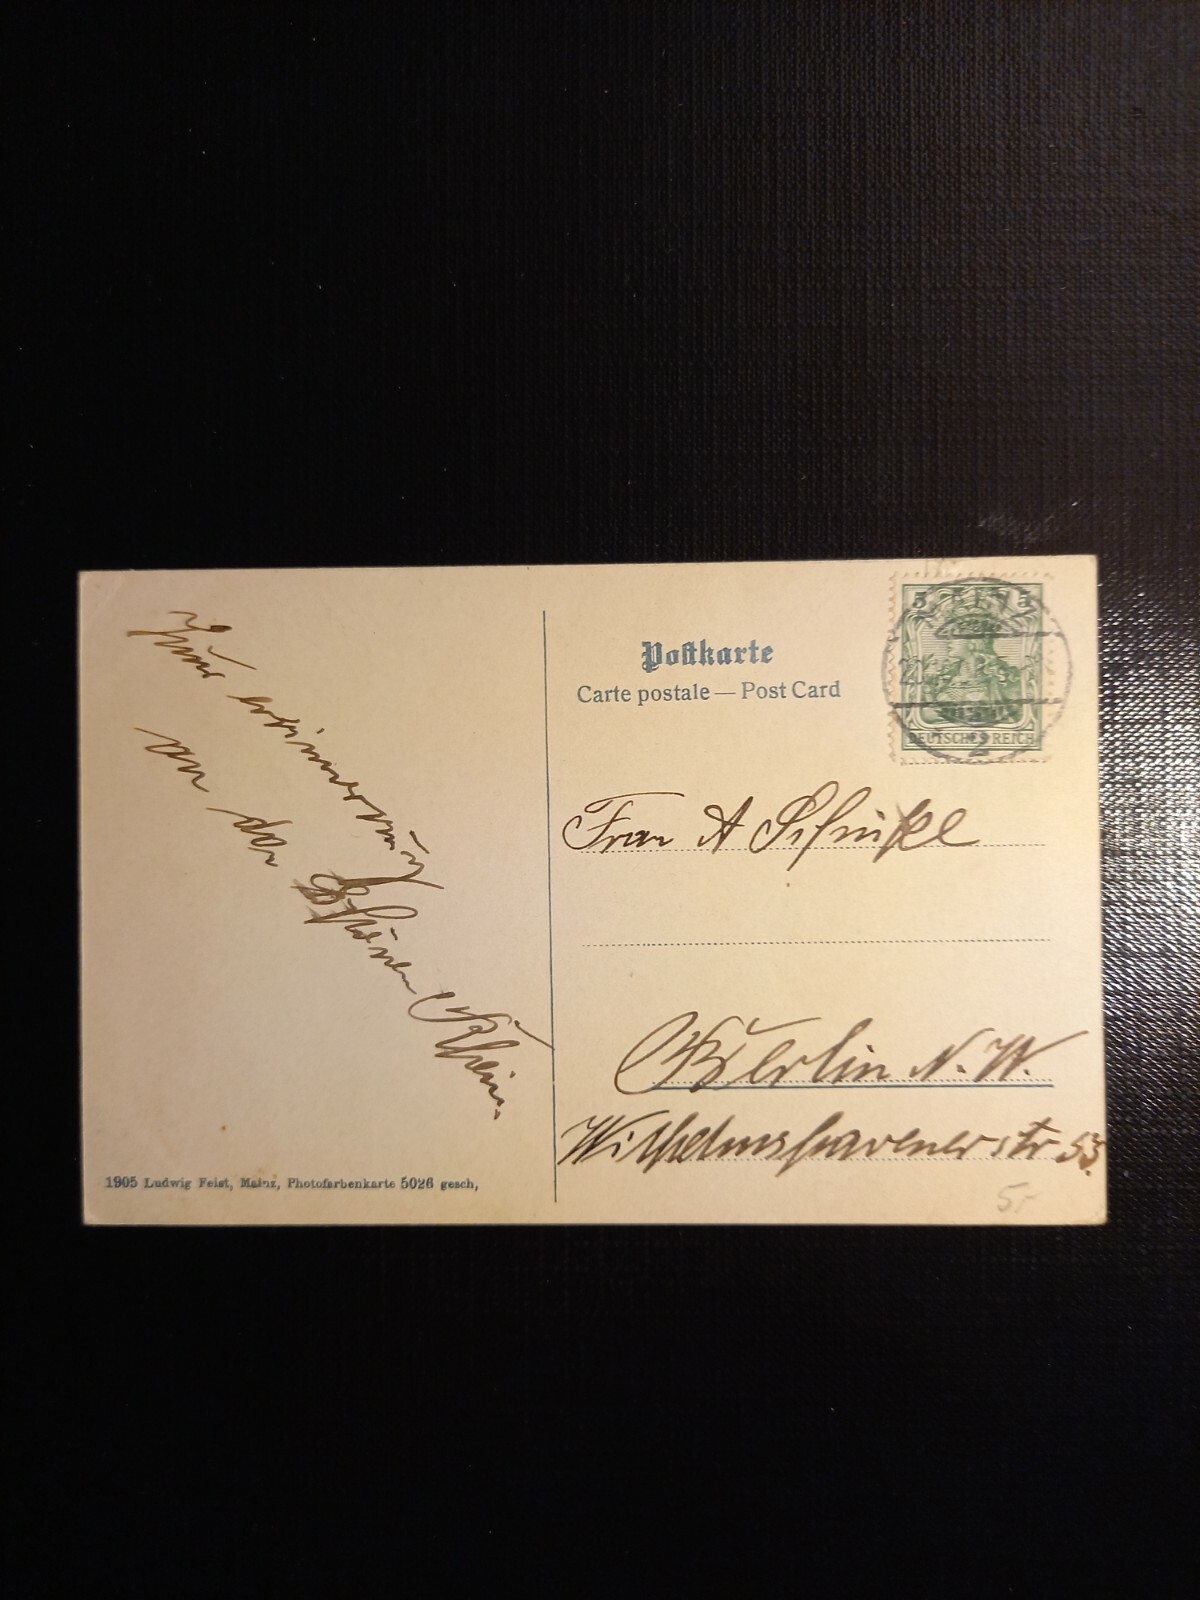 Zur Erinnerung
an den
schönen Rhein.
1905 Ludwig Feist, Mainz, Photofarbenkarte 5026 gesch,
Postkarte
Carte postale — Post Card
5 5
DEUTSCHES REICH
2
Frau A
Berlin N. W.
Wilhelmshavenerstr 53.
5.-